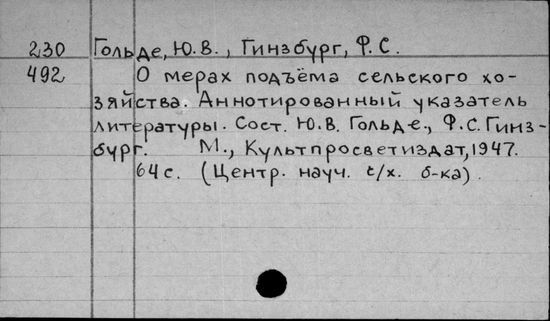 230 Гольде, Ю.В., Гинзбург, Ф.С.
492 О мерах подъёма сельского хо-
зяйства. Аннотированный указатель
литературы. Сост. Ю.В. Гольде., Ф.С. Гинз-
бург. М., Культпросветиздат, 1947.
64 с. (Центр. науч. с/х. б-ка).